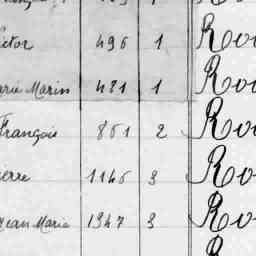 ictor 496 1 Rou
arie Marin 481 1 Rou
François 861 2 Rou
ierre 1146 3 Rou
Jean Marie 1347 3 Rou